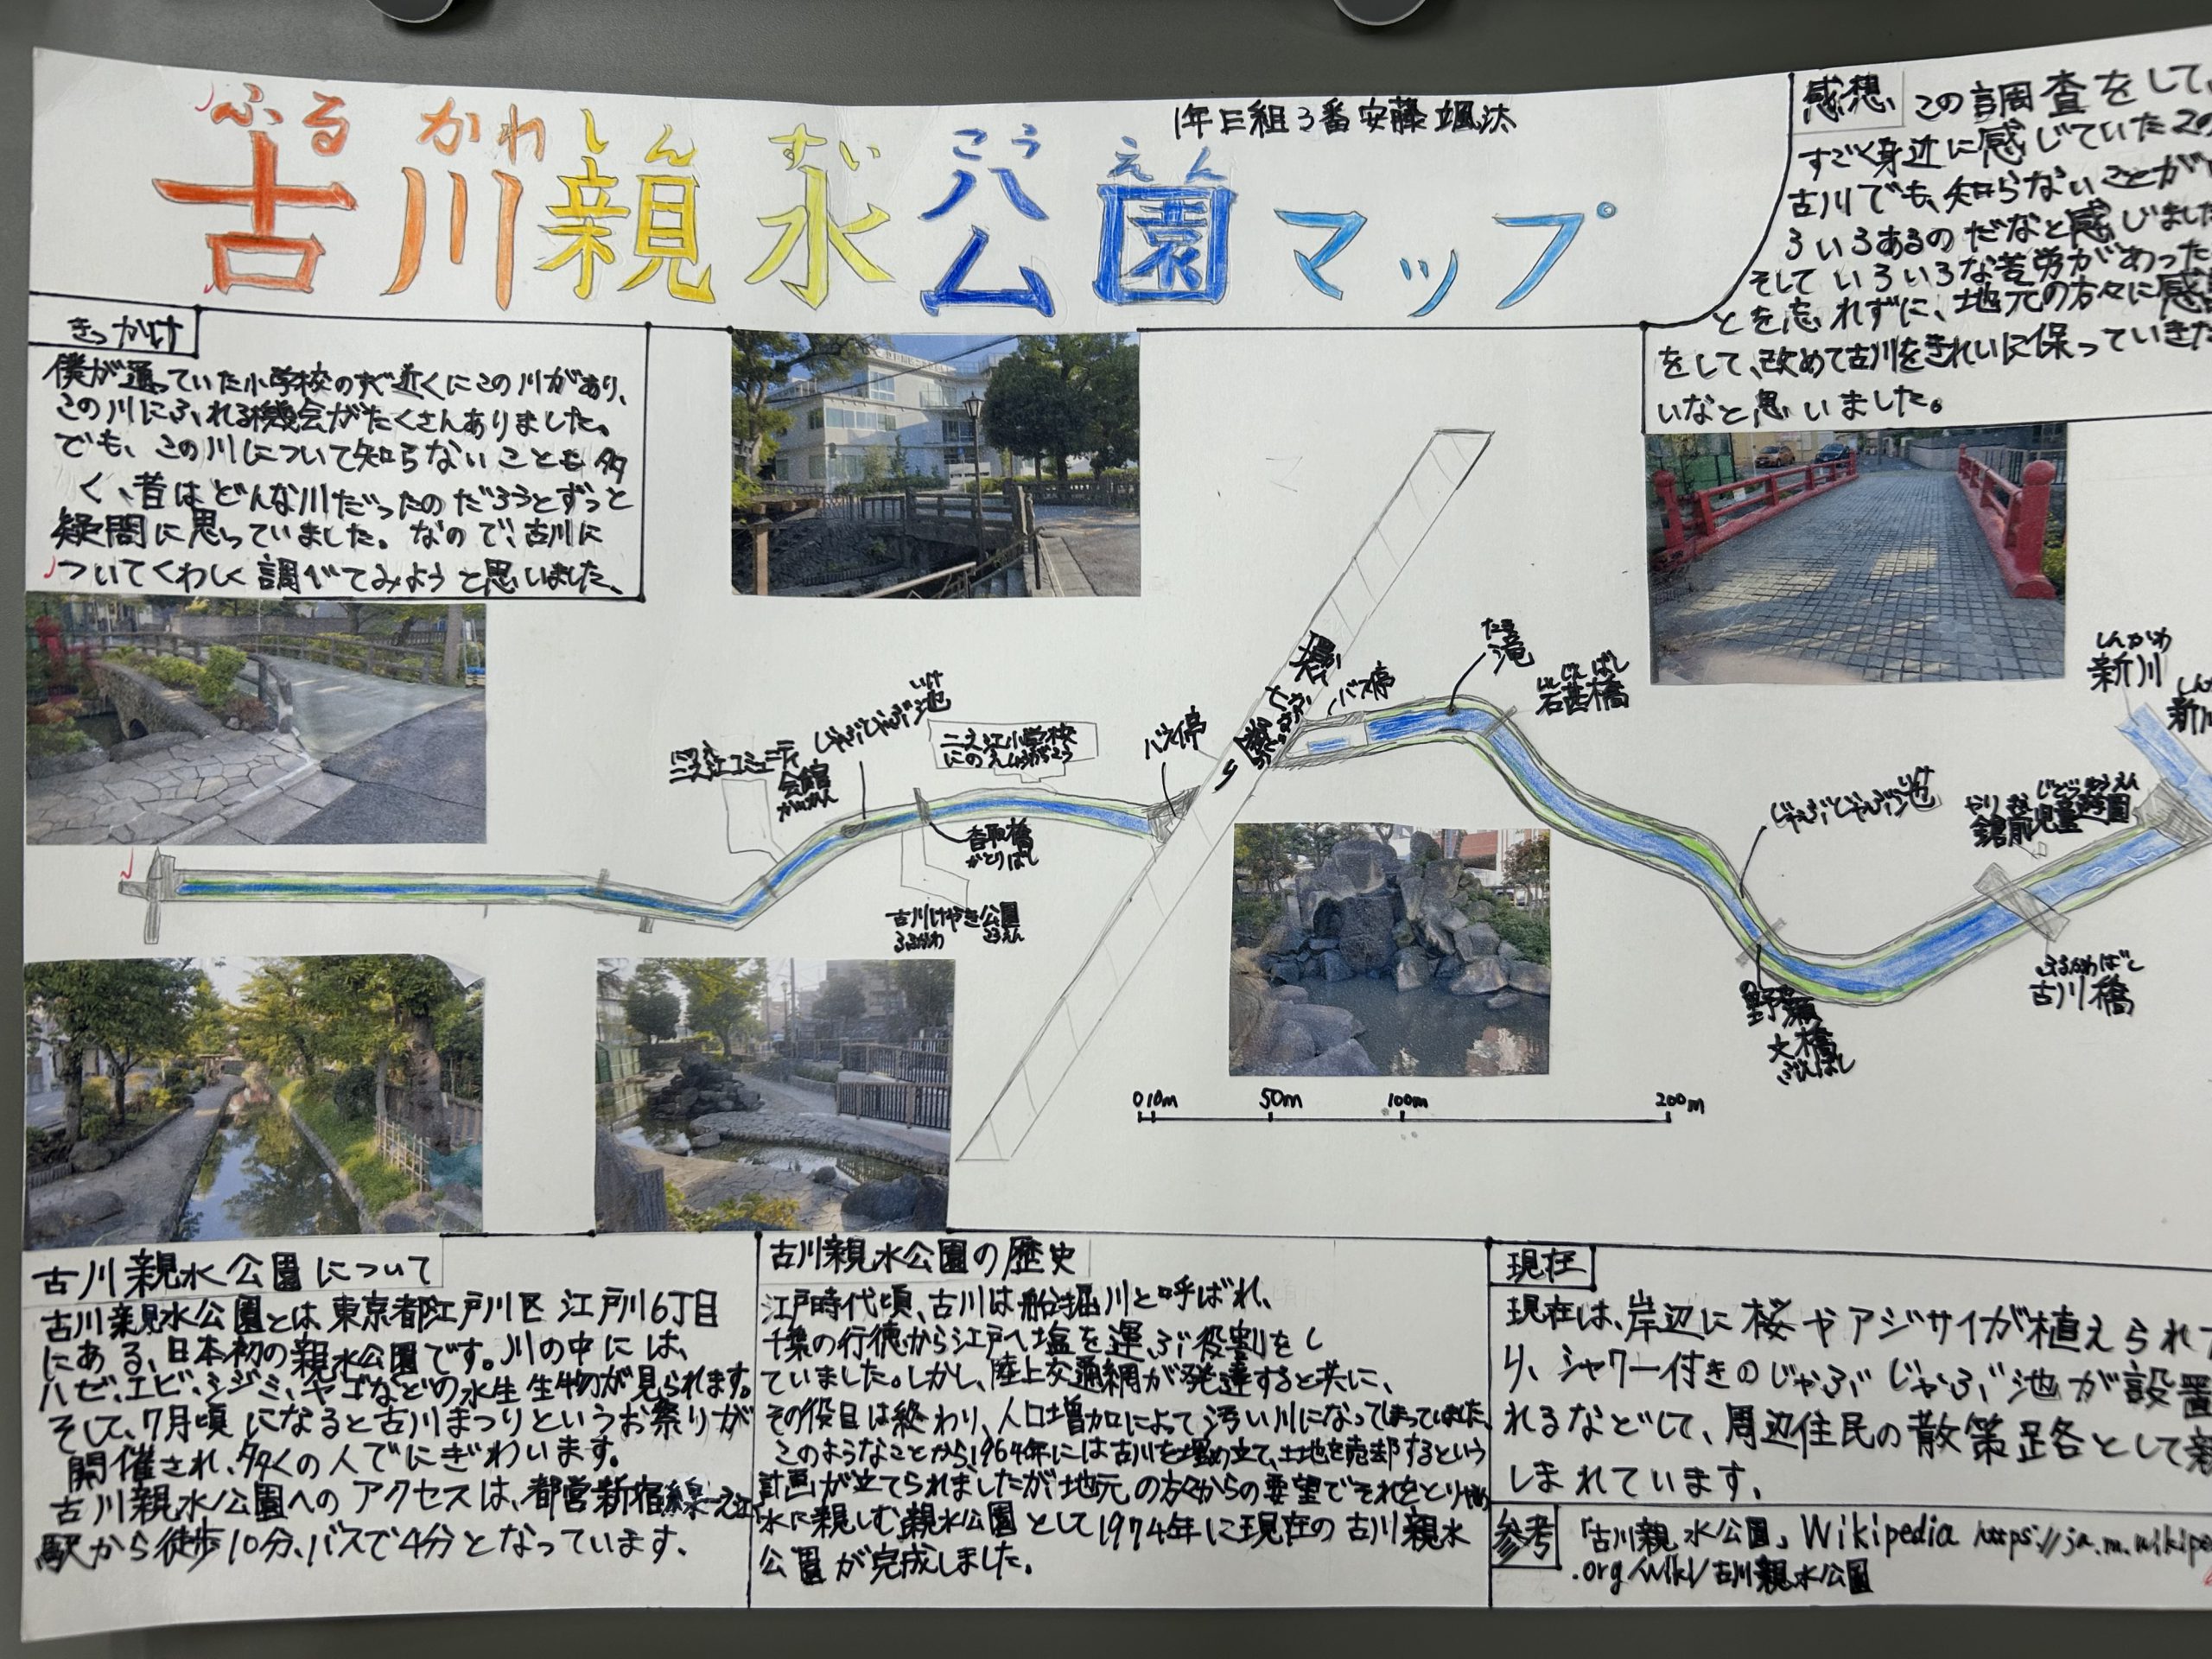 ふる かわ しん すい こう えん
古川親水公園マップ
1年E組3番安藤颯汰
きっかけ
僕が通っていた小学校のすぐ近くにこの川があり、
この川にふれる機会がたくさんありました。
でも、この川について知らないことも多
く、昔はどんな川だったのだろうとずっと
疑問に思っていました。なので、古川に
ついてくわしく調べてみようと思いました。
感想
この調査をして、
すごく身近に感じていたこの
古川でも、知らないことが
ろいろあるのだなと感じました
そしていろいろな苦労があった
とを忘れずに、地元の方々に感
をして、改めて古川をきれいに保っていきた
いなと思いました。
コミュニティ
会館
かいかん
じゃぶじゃぶ池
いけ
二之江小学校
にのえしょうがっこう
香取橋
かとりばし
古川けやき公園
ふるかわ こうえん
バス停
バス停
たき
滝
ばし
橋
じゃぶじゃぶ池
しんかわ
新川
じどうゆうえん
児童遊園
ふるかわばし
古川橋
大橋
0 10m 50m 100m 200m
古川親水公園について
古川親水公園とは東京都江戸川区江戸川6丁目
にある、日本初の親水公園です。川の中には、
ハゼ、エビ、シジミ、ヤゴなどの水生生物が見られます。
そして、7月頃になると古川まつりというお祭りが
開催され、多くの人でにぎわいます。
古川親水公園へのアクセスは、都営新宿線一之江
駅から徒歩10分、バスで4分となっています。
古川親水公園の歴史
江戸時代頃、古川は船堀川と呼ばれ、
千葉の行徳から江戸へ塩を運ぶ役割をし
ていました。しかし、陸上交通網が発達すると共に、
その役目は終わり、人口増加によって汚い川になってしまっていました。
このようなことから1964年には古川を埋め立て、土地を売却するという
計画が立てられましたが地元の方々からの要望でそれをとりやめ
水に親しむ親水公園として1974年に現在の古川親水
公園が完成しました。
現在
現在は、岸辺に桜やアジサイが植えられた
り、シャワー付きのじゃぶじゃぶ池が設置
れるなどして、周辺住民の散策路として親
しまれています。
参考
「古川親水公園」Wikipedia https://ja.m.wikipe
.org/wiki/古川親水公園